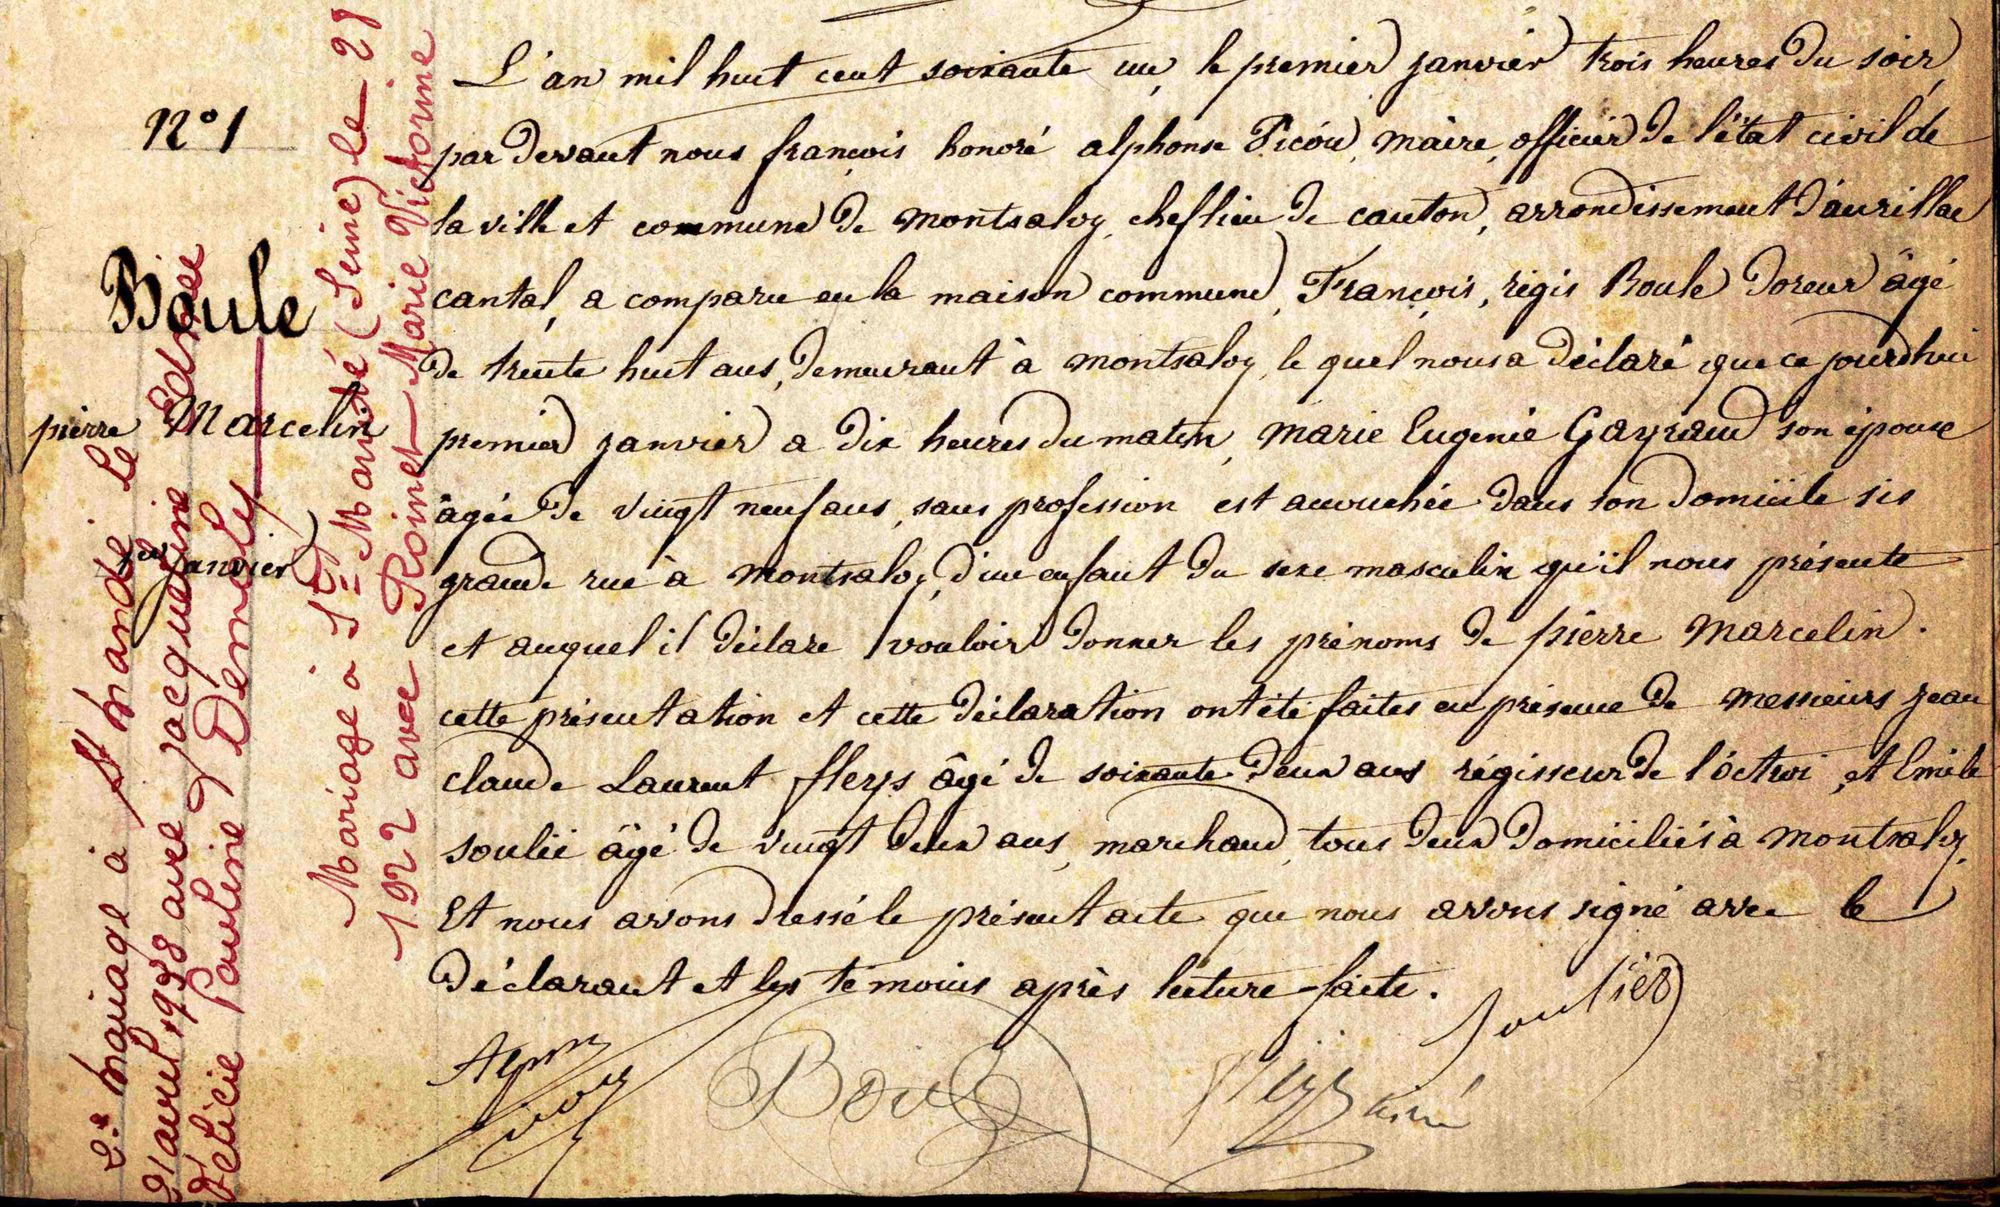 N° 1
Boule
pierre Marcelin
1er janvier
L'an mil huit cent soixante un, le premier janvier trois heures du soir,
par devant nous françois honoré alphonse Picou, maire, officier de l'état civil de
la ville et commune de montsalvy, chef lieu de canton, arrondissement d'aurillac
cantal, a comparu en la maison commune, François, régis Boule doreur âgé
de trente huit ans, demeurant à montsalvy, le quel nous a déclaré que ce jourd'hui
premier janvier a dix heures du matin, marie Eugenie Gayraud son épouse
âgée de vingt neuf ans, sans profession est accouchée dans son domicile sis
grande rue à montsalvy, d'un enfant du sexe masculin qu'il nous présente
et auquel il déclare vouloir donner les prénoms de pierre Marcelin.
cette présentation et cette déclaration ont été faites en présence de messieurs jean
claude Laurent fleys âgé de soixante deux ans régisseur de l'octroi, et Emile
soulié âgé de vingt deux ans, marchand, tous deux domiciliés à montsalvy,
Et nous avons dressé le présent acte que nous avons signé avec le
déclarant et les témoins après lecture faite.
Boule
Soulier
fleys ainé
Mariage à St Mandé (Seine) le 28
1922 avec Roinet Marie Victorine
2e mariage à St Mandé le
21 avril 1938 avec Jacqueline Edmée
Félicie Pauline Demoly